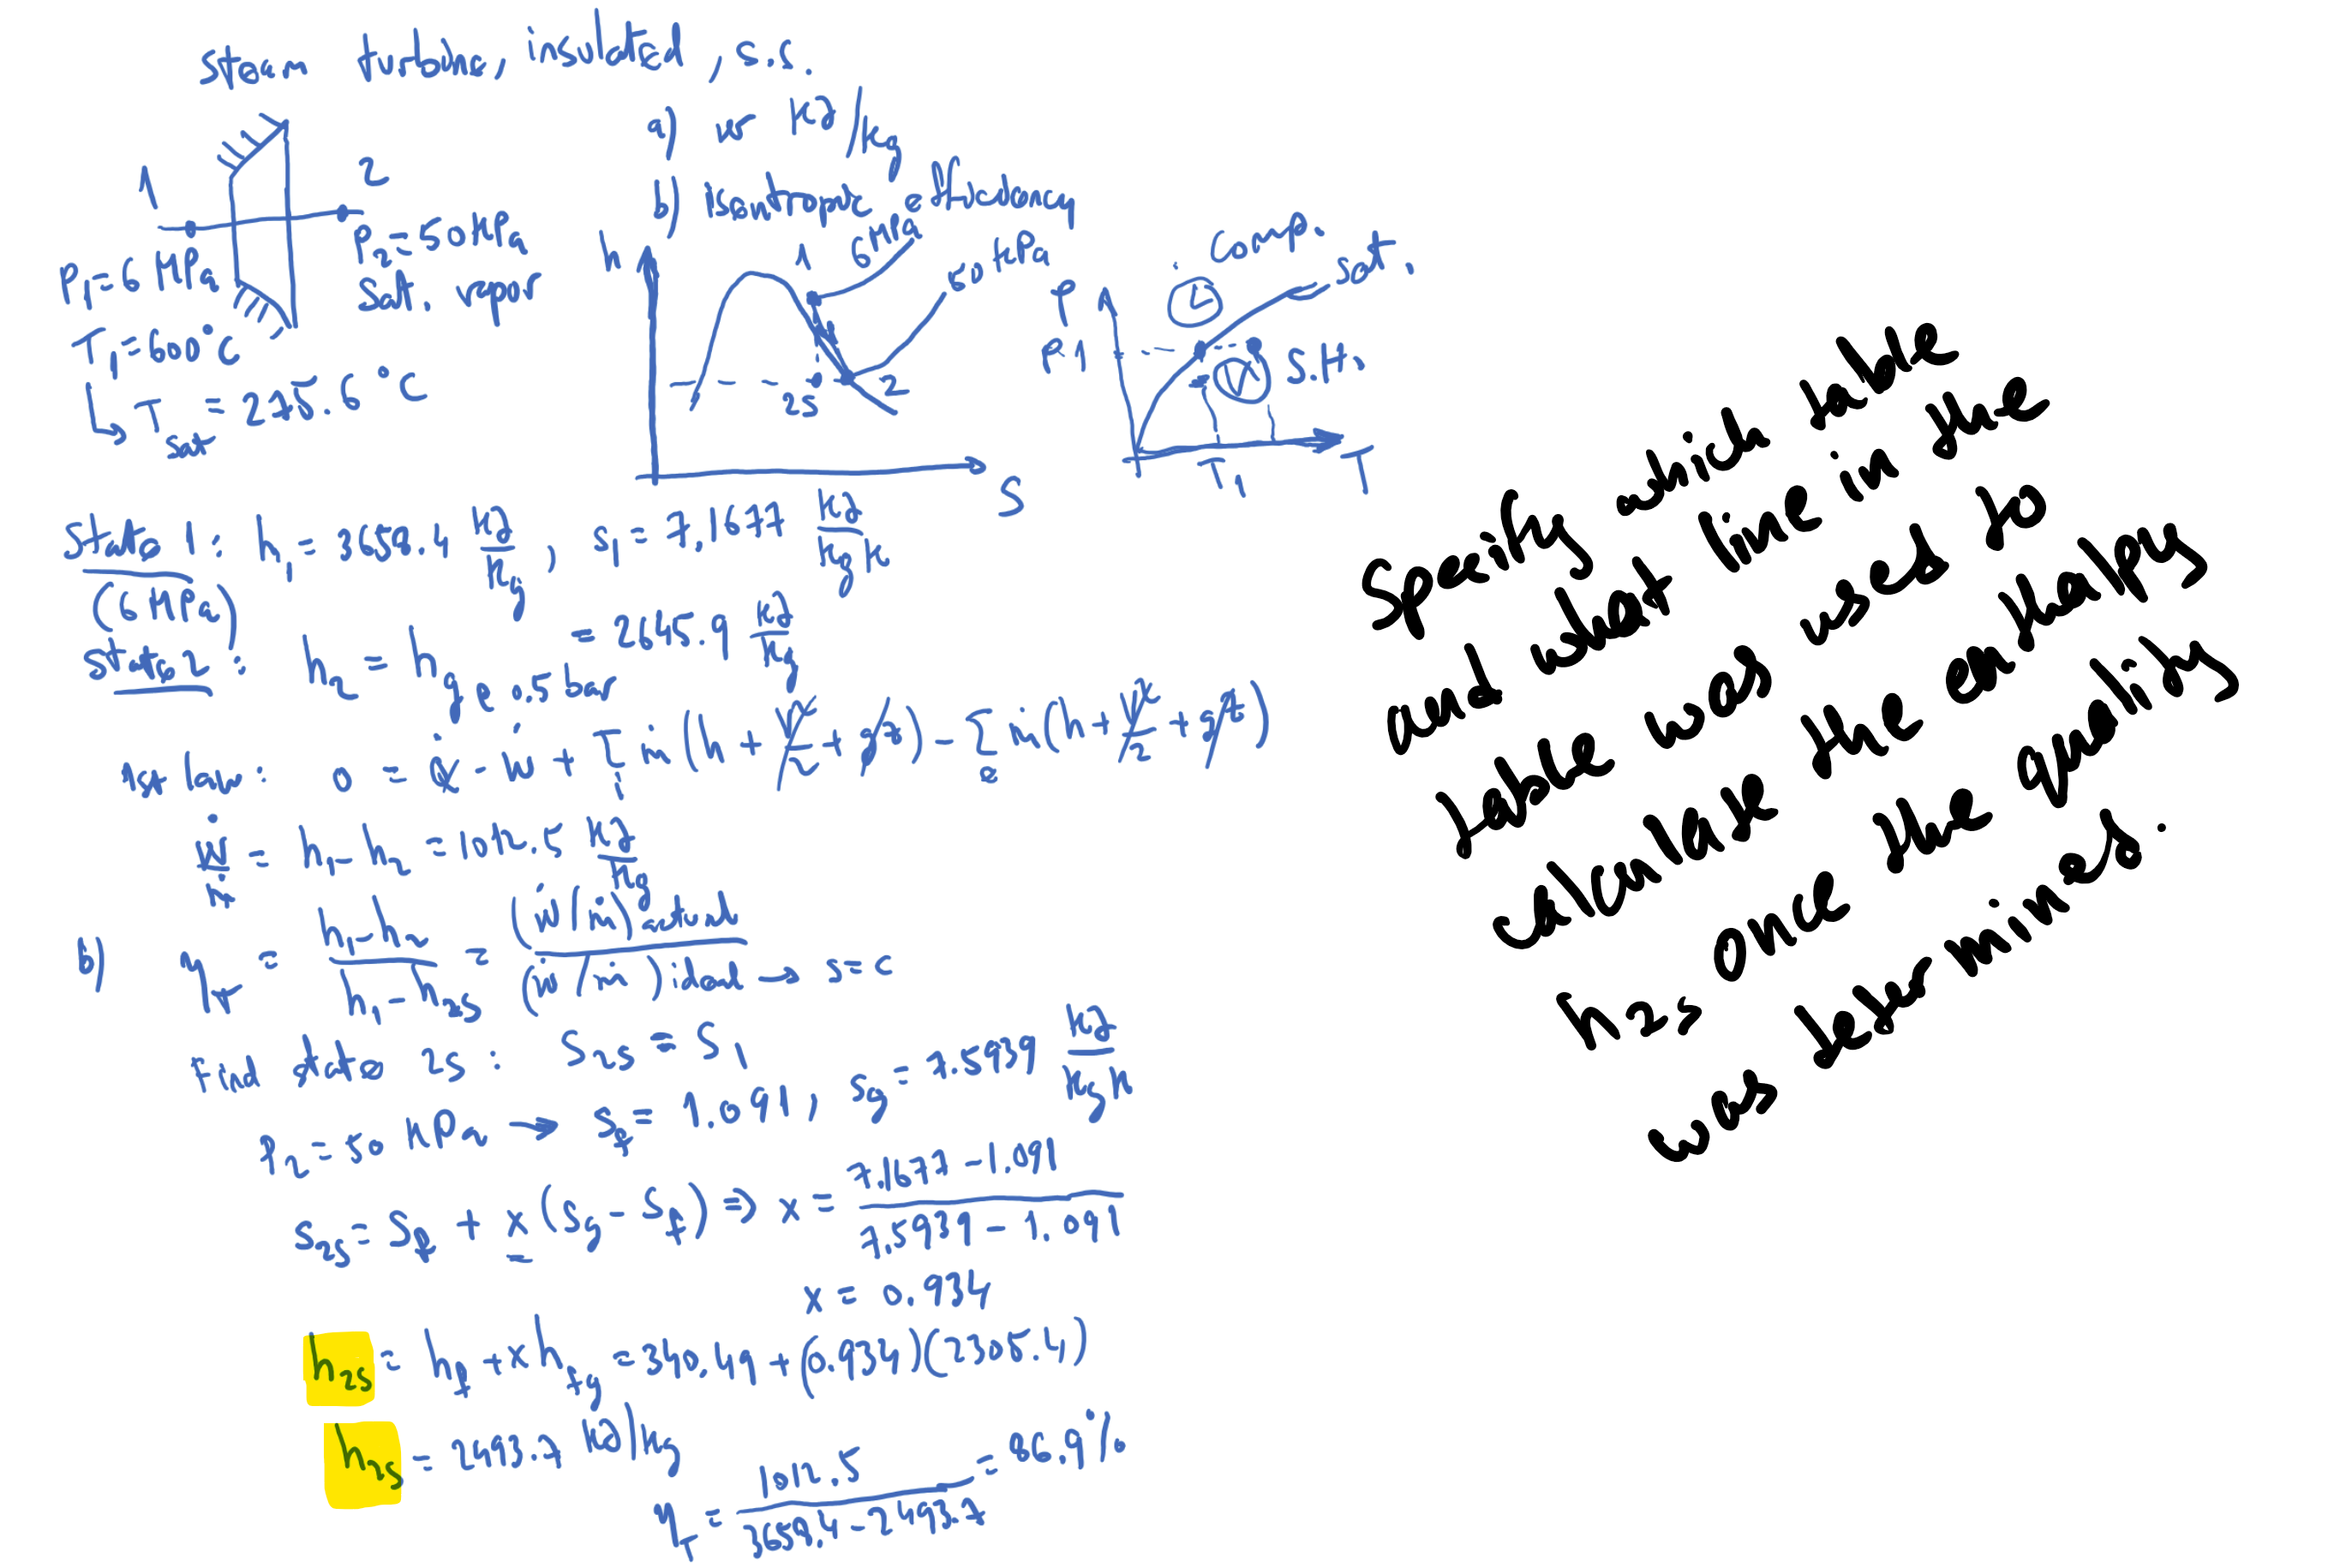 steam turbine, insulated, s.s.
a) w kJ/kg
b) isentropic efficiency
1
2
P1 = 6 MPa
T1 = 600°C
↳ Tsat = 275.6°C
P2 = 50 kPa
sat. vapor
h
1
6 MPa
50 kPa
2s
2
s
P
P1
L
comp.
sat.
V
S.H.
T1
T
State 1: h1 = 3658.4 kJ/kg, s1 = 7.1677 kJ/kg K
(6 MPa)
state 2: h2 = hg @ 0.5 bar = 2645.9 kJ/kg
1st law: 0 = Q̇ - Ẇ + Σi ṁ(h + V²/2 + gz) - Σe ṁ(h + V²/2 + gz)
Ẇ/ṁ = h1 - h2 = 1012.5 kJ/kg
b) ηT = (h1 - h2)/(h1 - h2s) = (Ẇ/ṁ)actual/(Ẇ/ṁ)ideal → s = c
Find state 2s: s2s = s1
P2 = 50 kPa → sf = 1.091, sg = 7.5939 kJ/kg K
s2s = sf + x(sg - sf) ⇒ x = (7.1677 - 1.091)/(7.5939 - 1.091)
x = 0.934
h2s = hf + x hfg = 340.49 + (0.934)(2305.4)
h2s = 2493.7 kJ/kg
ηT = 1012.5/(3658.4 - 2493.7) = 86.9%
Specify which table
and what line in the
table was used to
calculate the enthalpy
h2s and the quality
was determined.